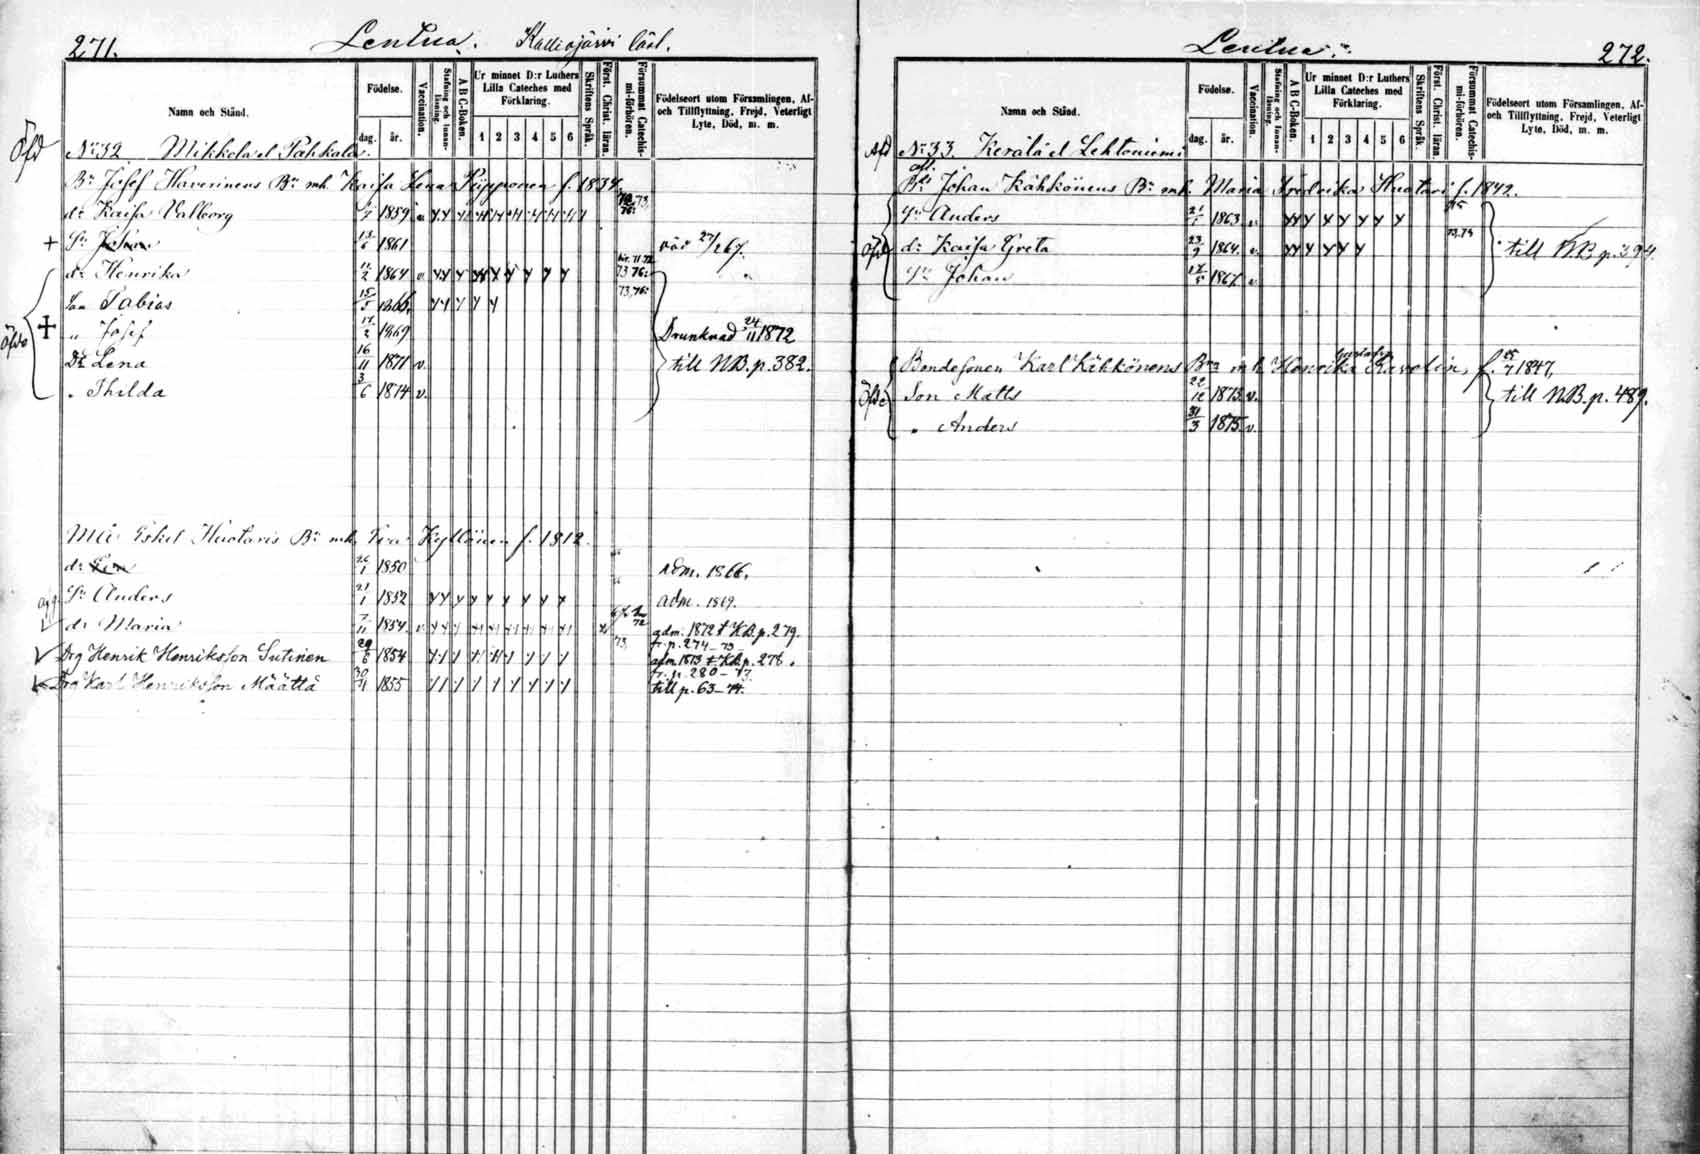 271. Lentua. Kalliojärvi läsl.
Namn och Stånd.
Födelse.
dag. år.
Vaccination.
Stafning och Innanläsning.
A B C-Boken.
Ur minnet D:r Luthers Lilla Cateches med Förklaring.
1 2 3 4 5 6
Skriftens Språk.
Först. Christ. läran.
Försummat Catechismi-förhören.
Födelseort utom Församlingen, Af- och Tillflyttning, Frejd, Veterligt Lyte, Död, m. m.
Öfd No 32 Mikkola el Pahkala.
Bn Josef Haverinens Bn mh. Kaisa Lena Piipponen f. 1834.
dr Kaisa Valborg 1859 v 73, 76.
+ Sn Johan 13/6 1861 död 27/2 67.
dr Henrika 11/2 1864 v. 73 76.
Son Tobias 15/5 1866. 73, 76.
+ " Josef 17/2 1869 Drunknad 24/11 1872
Dr Lena 16/11 1871 v. till NB. p. 382.
" Thilda 3/6 1874 v.
Eskel Huotaris Bn mh. Eva Kyllönen f. 1812.
dr 1850 adm. 1866.
Sn Anders 21/1 1852 adm. 1869.
dr Maria 7/11 1854 v. adm. 1872 t KB. p. 279.
fr. p. 274–73
Drg Henrik Henriksson Sutinen 29/6 1854 73, adm 1873 t KB. p. 278.
fr. p. 280–
Drg Karl Henriksson Määttä 30/11 1855 till p. 63–74.
Lentua. 272.
Namn och Stånd.
Födelse.
dag. år.
Vaccination.
Stafning och Innanläsning.
A B C-Boken.
Ur minnet D:r Luthers Lilla Cateches med Förklaring.
1 2 3 4 5 6
Skriftens Språk.
Först. Christ. läran.
Försummat Catechismi-förhören.
Födelseort utom Församlingen, Af- och Tillflyttning, Frejd, Veterligt Lyte, Död, m. m.
Afd No 33. Kerälä el Lehtoniemi
Johan Kähkönens Bn mh. Maria Fredrika Huotari f. 1842.
Sn Anders 21/1 1863 v. 75
dr Kaisa Greta 23/9 1864. v. 73.74 till NB p. 394.
Sn Johan 1867 v.
Bondesonen Karl Kähkönens Bn mh Henrika Gustafva Karolin, f. 1847,
Son Matts 1873. v. till NB. p. 489.
" Anders 31/3 1875. v.